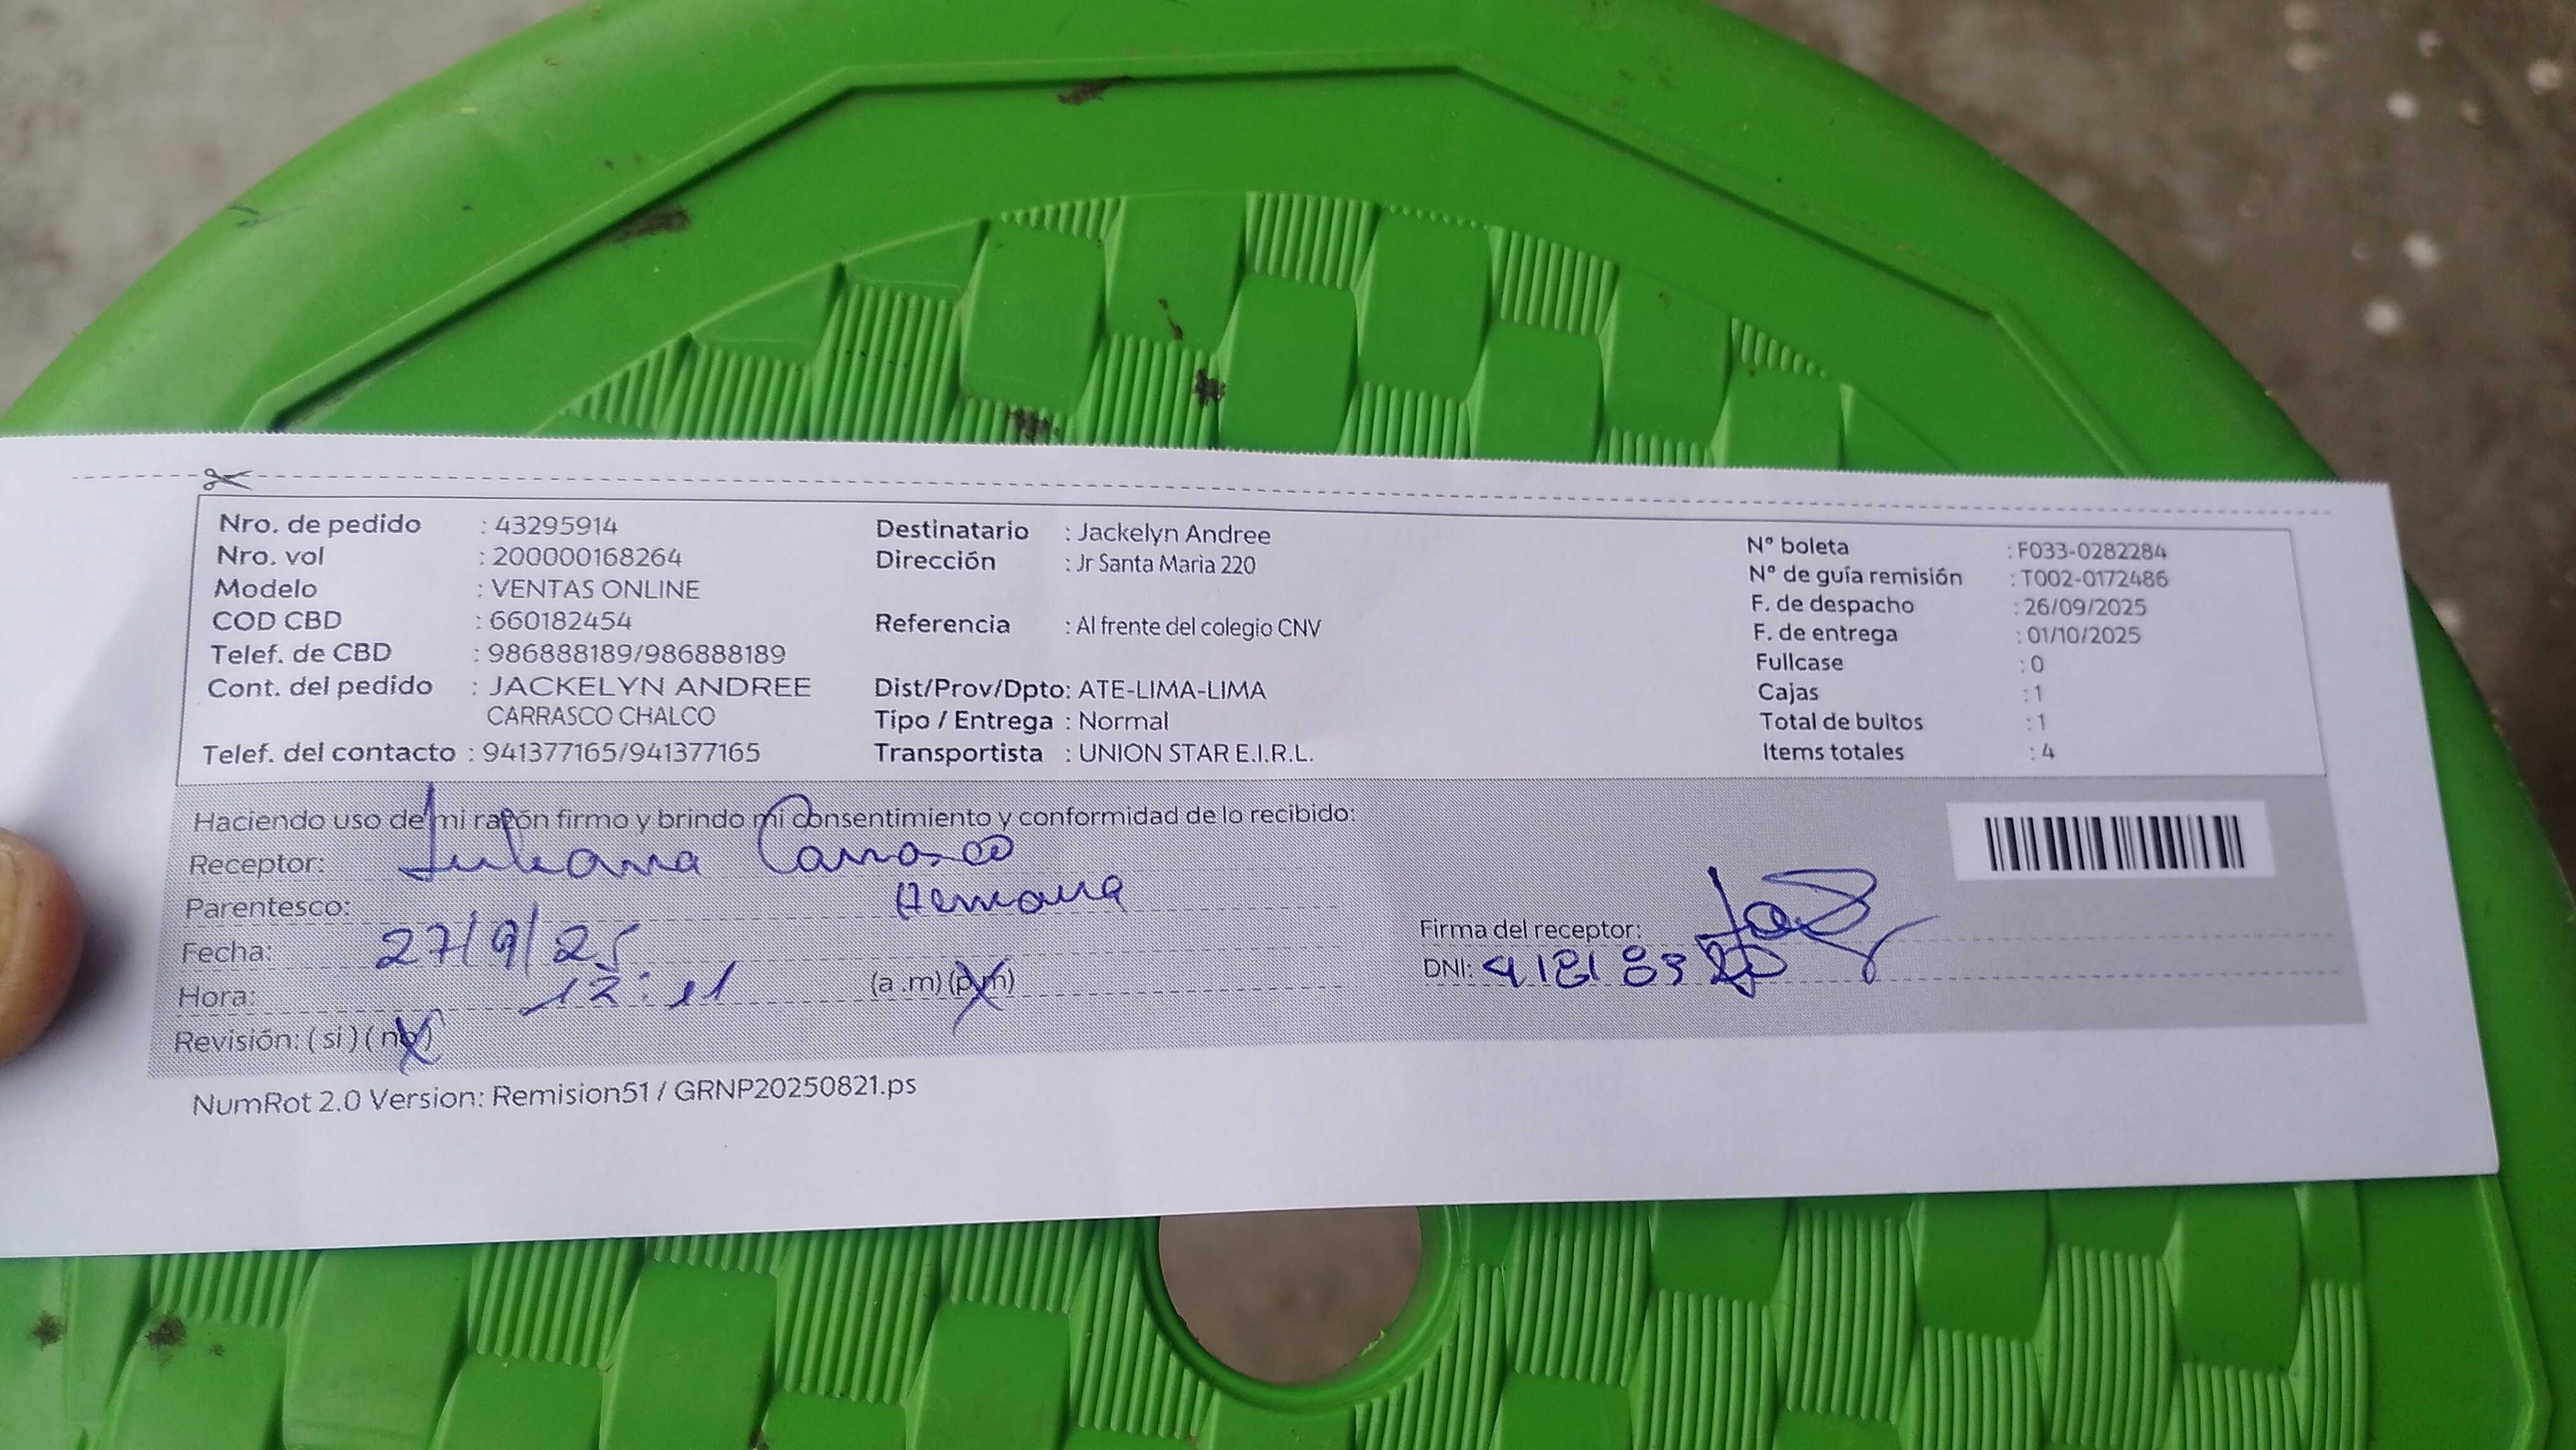 Nro. de pedido : 43295914
Nro. vol : 200000168264
Modelo : VENTAS ONLINE
COD CBD : 660182454
Telef. de CBD : 986888189/986888189
Cont. del pedido : JACKELYN ANDREE
CARRASCO CHALCO
Telef. del contacto : 941377165/941377165
Destinatario : Jackelyn Andree
Dirección : Jr Santa Maria 220
Referencia : Al frente del colegio CNV
Dist/Prov/Dpto: ATE-LIMA-LIMA
Tipo / Entrega : Normal
Transportista : UNION STAR E.I.R.L.
N° boleta : F033-0282284
N° de guía remisión : T002-0172486
F. de despacho : 26/09/2025
F. de entrega : 01/10/2025
Fullcase : 0
Cajas : 1
Total de bultos : 1
Items totales : 4
Haciendo uso de mi razón firmo y brindo mi consentimiento y conformidad de lo recibido:
Receptor: Juliana Carrasco
Parentesco: Hermana
Fecha: 27/9/25
Hora: 12:11 (a .m) (p.m)
Revisión: ( si ) ( no )
Firma del receptor:
DNI:
NumRot 2.0 Version: Remision51 / GRNP20250821.ps